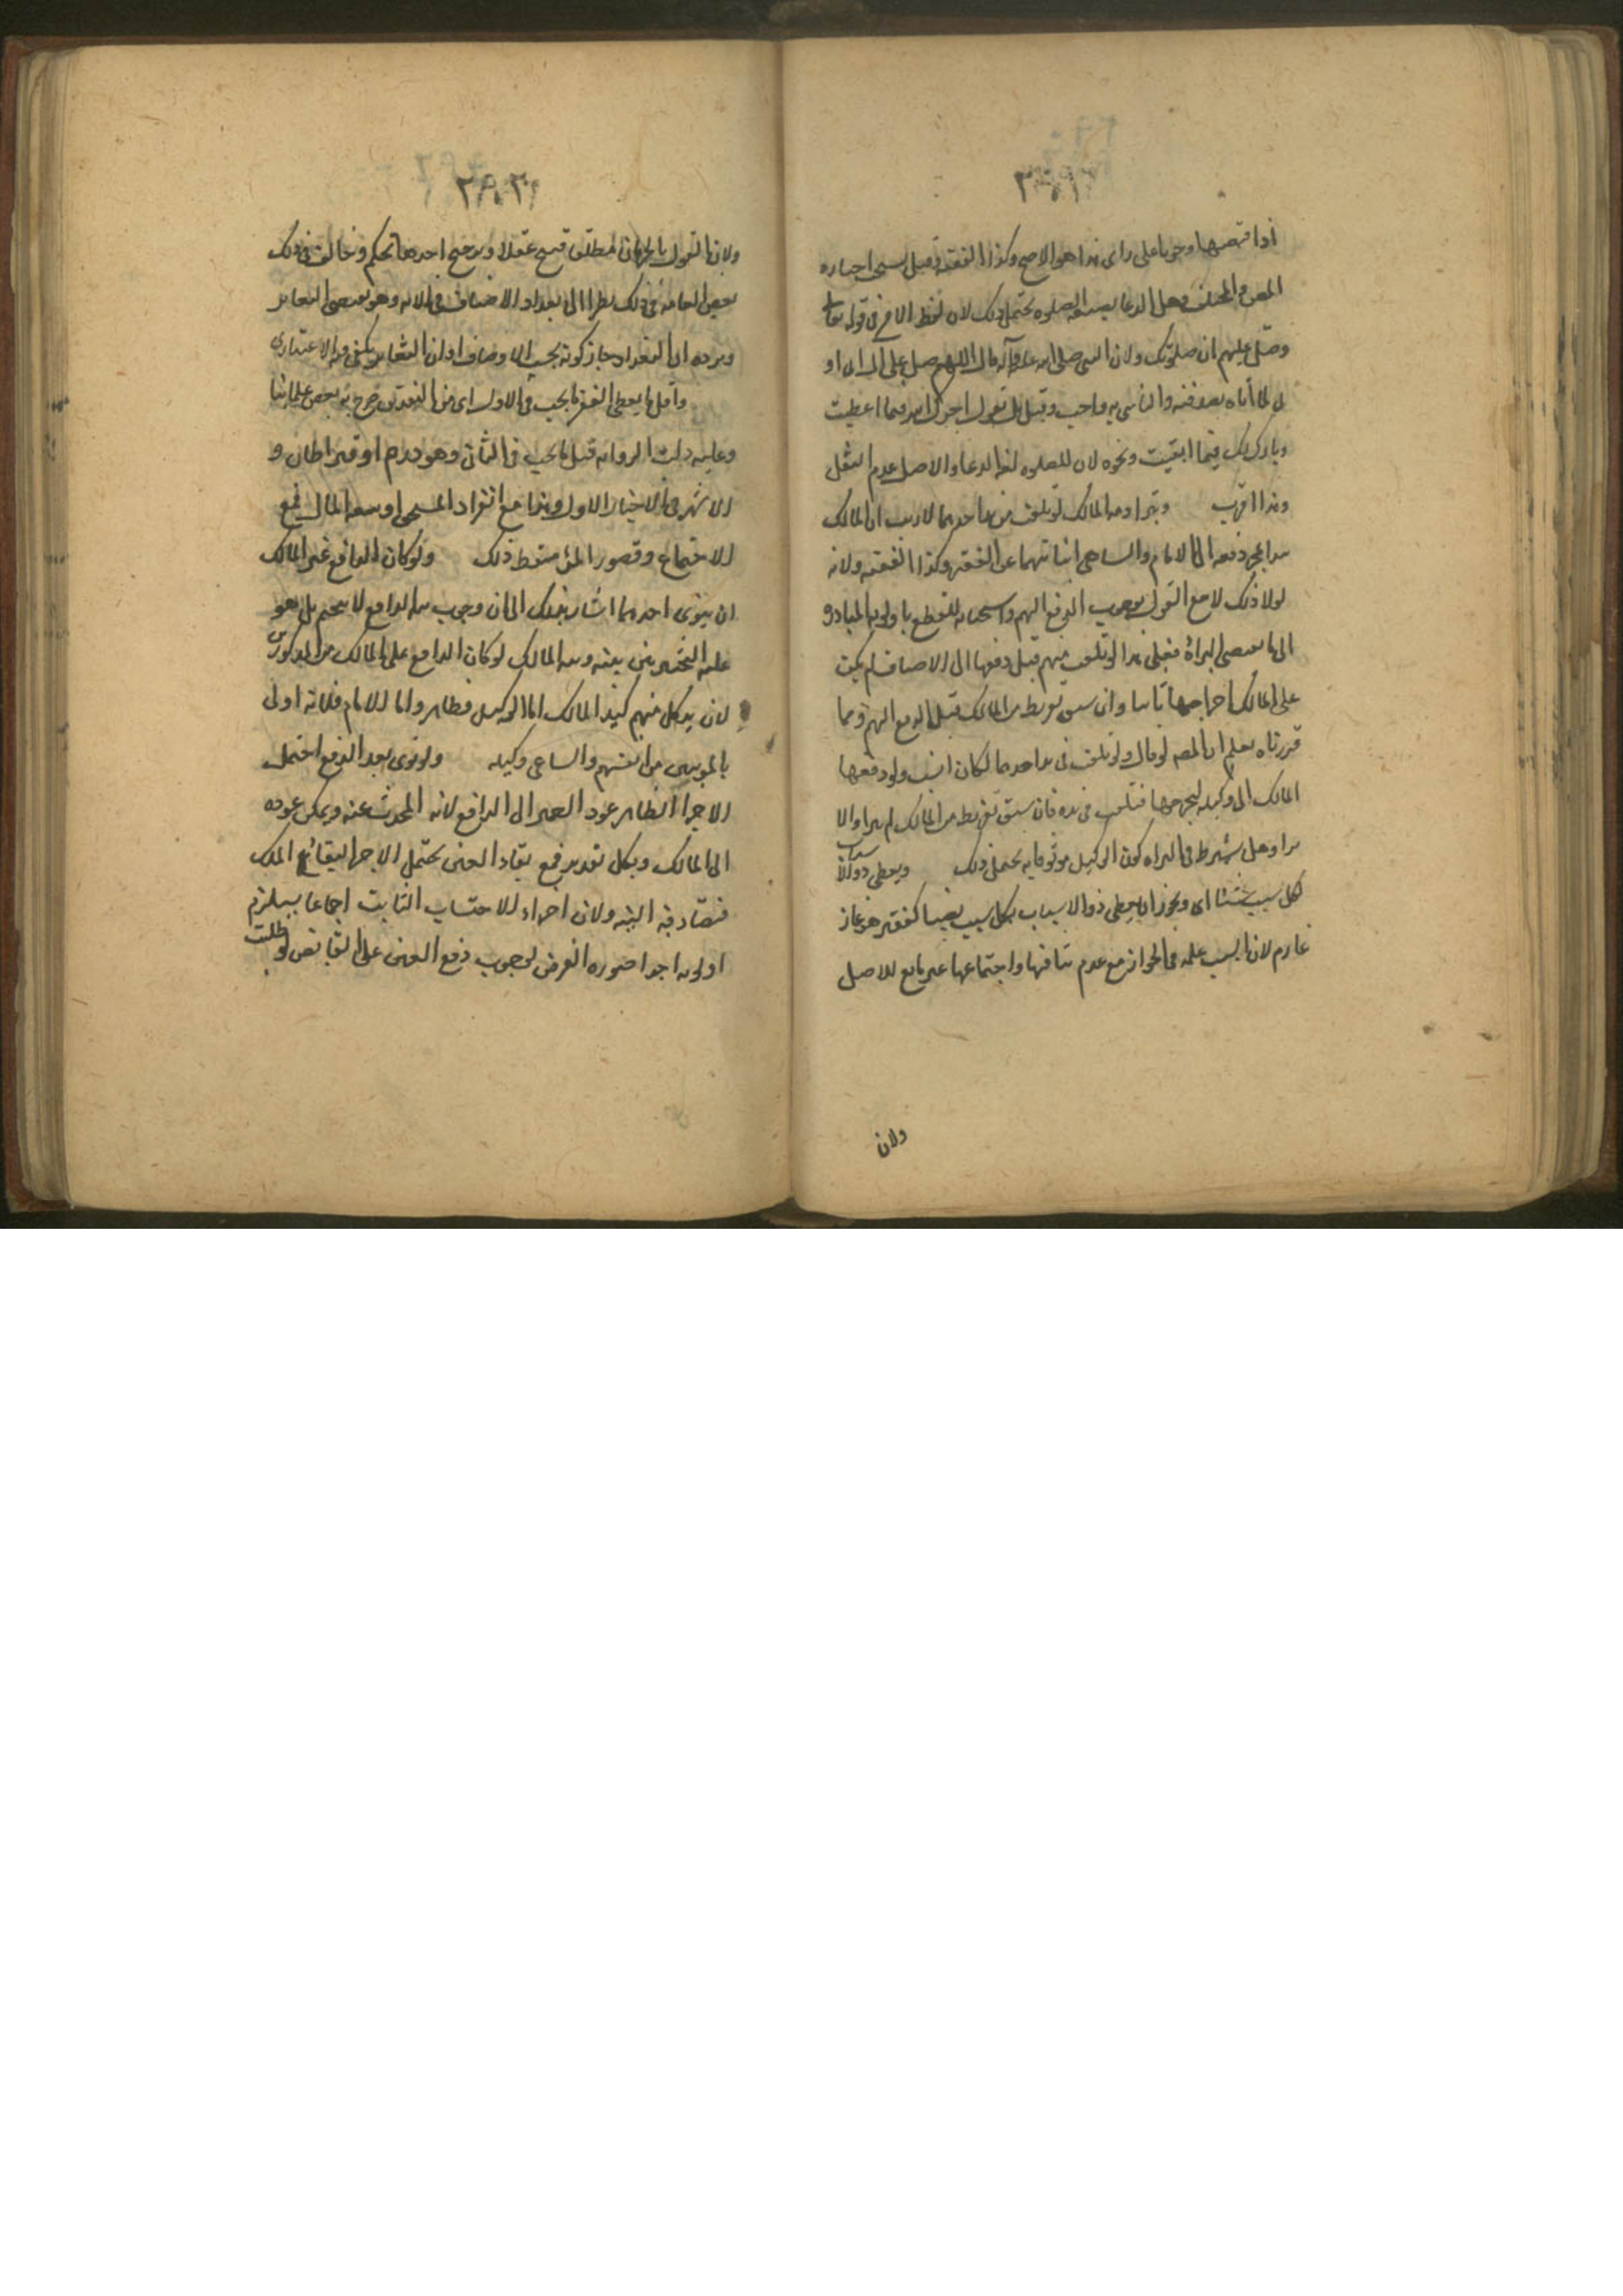 اذا قبضها وجوبا على راى هذا هو الاصح وكذا الفقيه وقيل يستحب اختاره
المص فى المختلف وهل الدعا بصيغه الصلوه يحتمل ذلك لان لفظ الامر فى قوله تعا
وصل عليهم ان صلوتك ولان النبى صلى الله عليه وآله قال اللهم صل على ال ابى او
فى لما أتاه بصدقته والتاسى به واجب وقيل بل تقول اجرك الله فيما اعطيت
وبارك لك فيما ابقيت ونحوه لان الصلوه لغه الدعا والاصل عدم النقل
وهذا اقرب وتبرا ذمه المالك لو تلفت من يد احدهما لا ريب ان المالك
يبرا بمجرد دفعه الى الامام والساعى لنيابتهما عن الفقير وكذا الفقيه ولانه
لولا ذلك لا مع القول بوجوب الدفع اليهم واستحبابه للقطع باولويه المبادره
الى ما يقتضى البراة فعلى هذا لو تلفت منهم قبل دفعها الى الاصناف لم يجب
على المالك اخراجها ثانيا وان سبق تفريط من المالك قبل الدفع اليهم ومما
قررناه يعلم ان المصه لو قال ولو تلفت فى يد احدهما لكان انسب ولو دفعها
المالك الى وكيله ليخرجها فتلفت فى يده فان سبق تفريط من المالك لم يبرا والا
برا وهل يشترط فى البراه كون الوكيل موثوقا به يحتمل ذلك ويعطى ذو الاسباب
بكل سبب شيئا اى ويجوز ان يعطى ذو الاسباب بكل سبب نصيبا كفقير هو غاز
غارم لان السبب عله فى الجواز مع عدم تنافيها واجتماعها غير مانع للاصل
ولان
ولان القول بالحرمان مطلقا قبيح عقلا وترجيح احدهما تحكم وخالف فى ذلك
بعض العامه فى ذلك نظرا الى تعداد الاصناف فى الايه وهو يقتضى التغاير
ويرده ان التعداد جاز كونه بحسب الاوصاف او ان التغاير يكفى فيه الاعتبارى
واقل ما يعطى الفقير ما يجب فى الاول اى من النقدين صرح به بعض علمائنا
وعليه دلت الروايه قيل ما يجب فى الثانى وهو درهم او قيراطان و
الاشهر فى الاخبار الاول وهذا مع انفراد المستحق او سعه المال فمع
الاجتماع وقصور المال سقط ذلك ولو كان الدافع غير المالك
ان ينوى احدهما اشار بذلك الى ان وجوب نيه الدافع لا يتحتم بل هو
عليه التخيير بين نيته ونيه المالك لو كان الدافع على المالك من المذكورين
لان يد كل منهم كيد المالك اما الوكيل فظاهر واما الامام فلانه اولى
بالمومنين من انفسهم والساعى وكيله ولو نوى بعد الدفع احتمل
الاجزا الظاهر عود الضمير الى الدافع لانه المحدث عنه ويمكن عوده
الى المالك وبكل تقدير فمع بقاء العين يحتمل الاجزا لبقائها على الملك
فتصادفه النيه ولان اجزاء الاحتساب الثابت اجماعا يستلزم
اولويه اجزا صوره الفرض لوجوب دفع العين على القابض لو طلبت